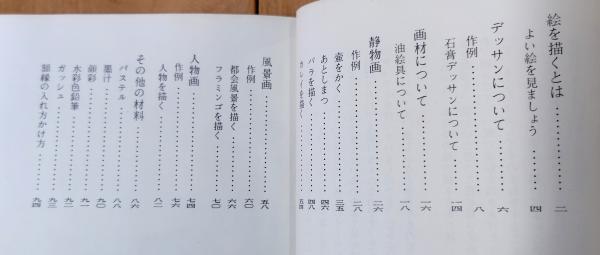 絵を描くとは‥‥‥‥二
よい絵を見ましょう‥‥‥‥四
デッサンについて‥‥‥‥六
作例‥‥‥‥八
石膏デッサンについて‥‥‥‥一四
画材について‥‥‥‥一六
油絵具について‥‥‥‥一八
静物画‥‥‥‥二六
作例‥‥‥‥二八
壷をかく‥‥‥‥三五
あとしまつ‥‥‥‥四六
バラを描く‥‥‥‥四八
五四
風景画‥‥‥‥五八
作例‥‥‥‥六〇
都会風景を描く‥‥‥‥六六
フラミンゴを描く‥‥‥‥七〇
人物画‥‥‥‥七四
作例‥‥‥‥七六
人物を描く‥‥‥‥八二
その他の材料‥‥‥‥八六
パステル‥‥‥‥八八
墨汁‥‥‥‥九〇
顔彩‥‥‥‥九一
水彩色鉛筆‥‥‥‥九二
ガッシュ‥‥‥‥九三
額縁の入れ方かけ方‥‥‥‥九四